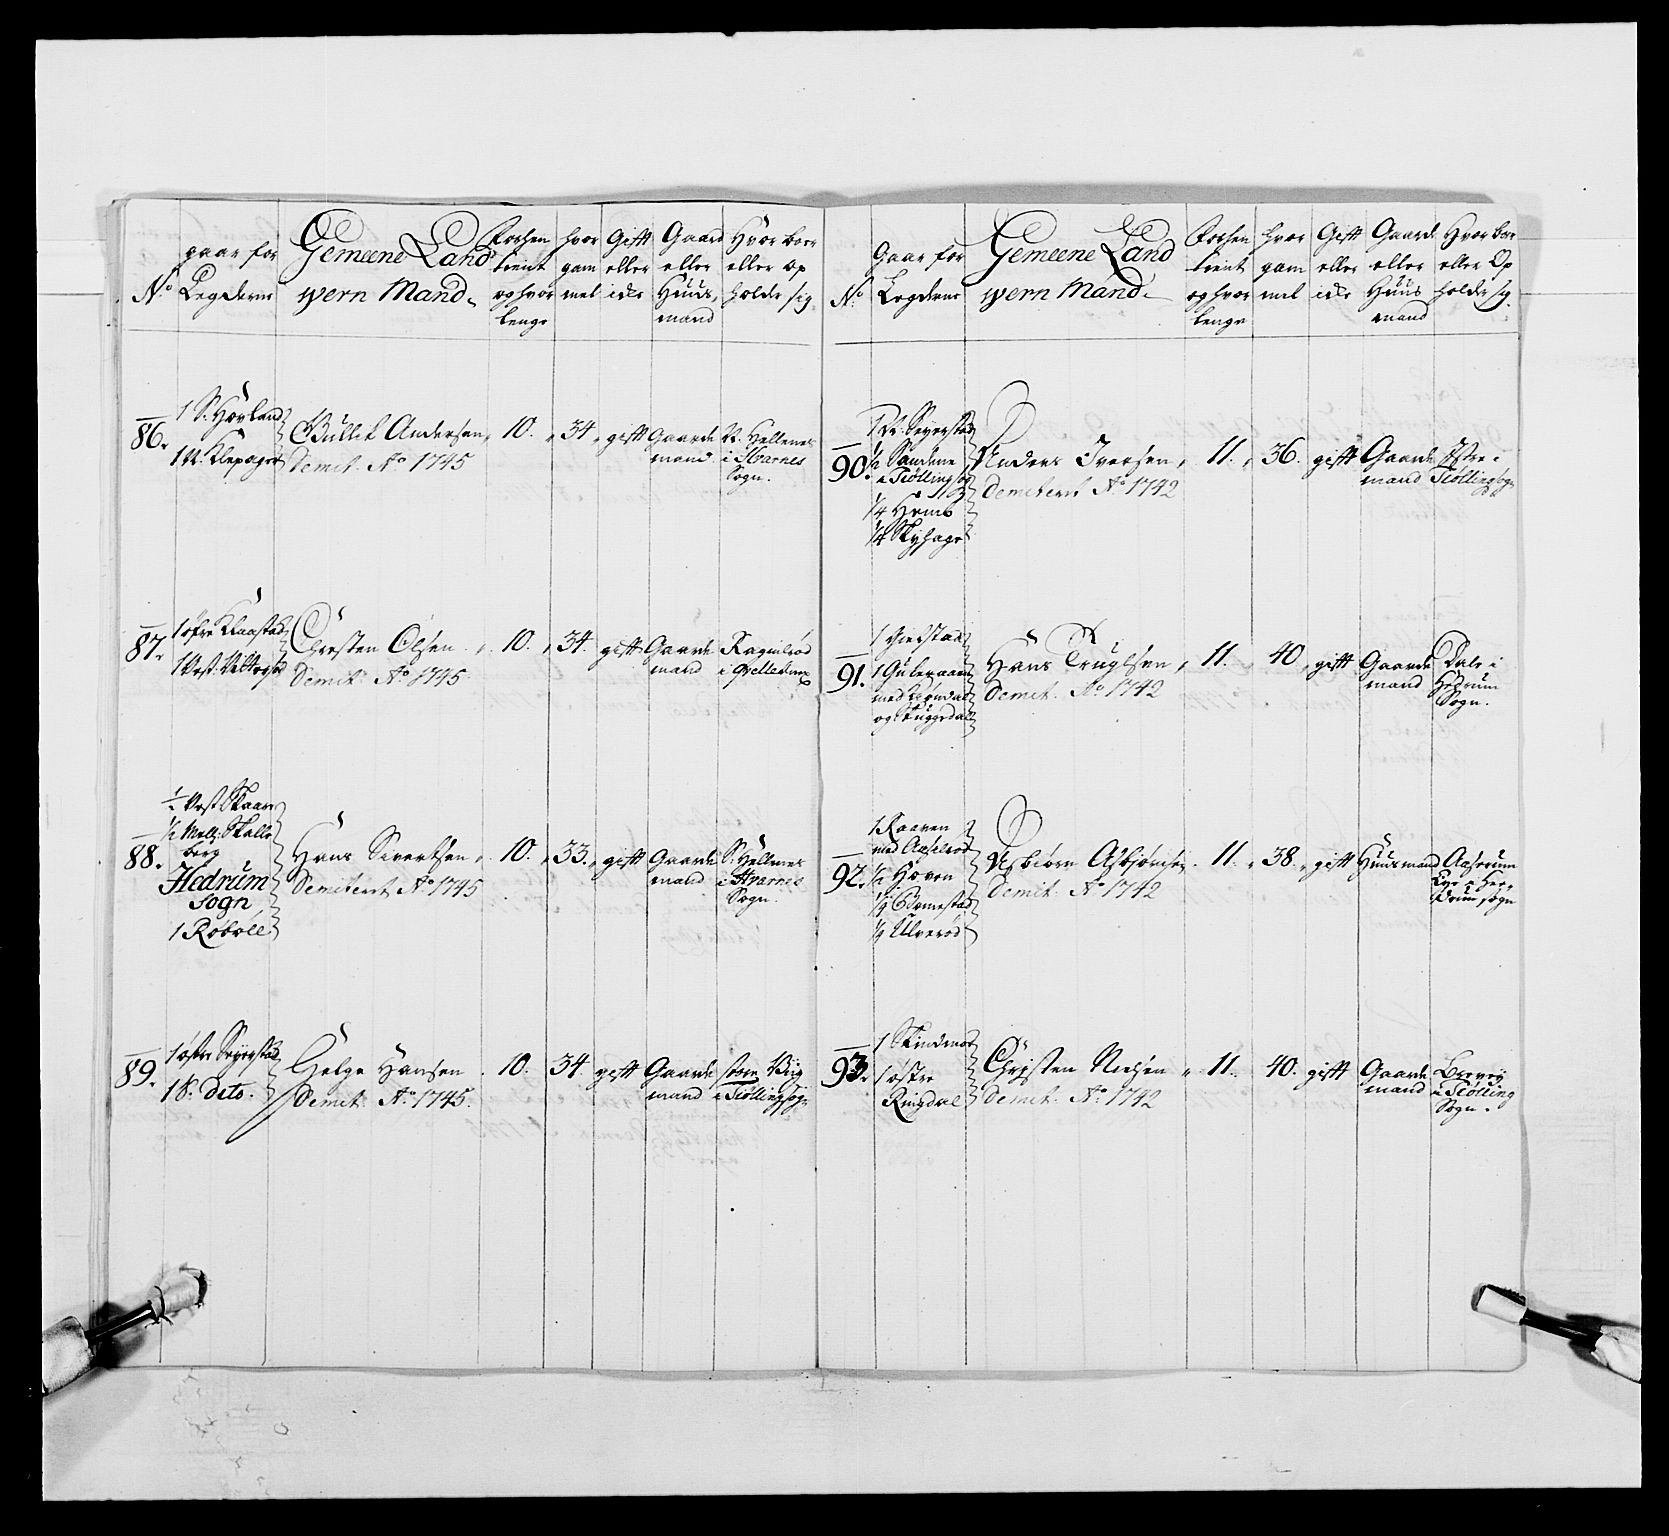 No.
gaar for
Legderne
Gemeene Land
wern Mand
Forhen
tient
og hvor
lenge
hvor
gam
mel
Gifft
eller
icke
Gaard
eller
Huus,
mand
Hvor boer
eller op
holder sig.
86.
1 S. Hovland
1 N. Klepager
Gullik Andersen
Demit. Ao 1745
10.
34
gifft
Gaard
mand
N. Hellenes
i Hvarnes
Sogn.
87.
1 øfre Klaastad
1 Vest.
Christen Olsen
Demit. Ao 1745
10.
34.
gifft
Gaard
mand
Ragnilrød
i
88.
1/2 Vest Skaan
1/2 Mell: Skalle
berg
Hedrum
Sogn
1 Røbøll
Hans Sivertsen
Demitert Ao 1745
10.
33.
gifft
Gaard
mand
S. Hellenes
i Hvarnes
Sogn.
89.
1 østre Seyerstad
1 S. dito.
Helge Hansen
Demit. Ao. 1745.
10.
34
gifft
Gaard
mand
store Byg
i Tiølling sogn
No.
Gaar for
Legderne
Gemeene Land
wern Mand
Forhen
tient
og hvor
lenge
hvor
gam
mel
Gifft
eller
icke
Gaard
eller
Huus
mand
Hvor boer
eller Op
holder sig.
90.
1 N. Seyerstad
1/2 Sandene
i Tiølling sog
1/4 Hem
1/4 Skyhage
Anders Iversen
Demitert Ao 1742
11.
36.
gifft
Gaard
mand
Istre i
Tiølling sogn
91.
1 Gierstad
1
med
og
Hans Truglsen
Demit. Ao 1742
11.
40
gifft
Gaard
mand
Dale i
Hedrum
Sogn.
92.
1 Raaven
med
1/2 Hoven
1/4
1/4 Ulverød
Asbiørn Asbiørnsen
Demit. Ao 1742
11.
38.
gifft
Huusmand
Aasrum
Eye i Hey
drum sogn
93.
1 Skindmo
1 østre
Ringdal
Christen Nielsen
Demit. Ao. 1742
11.
40.
gifft
Gaard
mand
Bergøy
i Tiølling
Sogn.